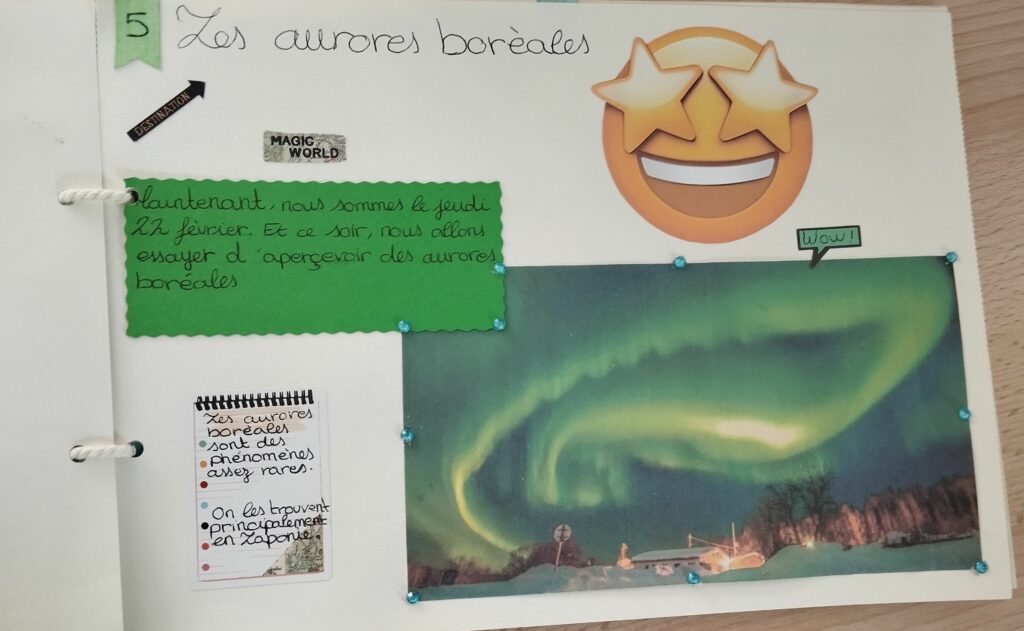 5
Les aurores borèales
DESTINATION
MAGIC
WORLD
Maintenant, nous sommes le jeudi
22 février. Et ce soir, nous allons
essayer d'apercevoir des aurores
boréales
Wow!
Les aurores
boréales
sont des
phénomènes
assez rares.
On les trouvent
principalement
en Laponie.